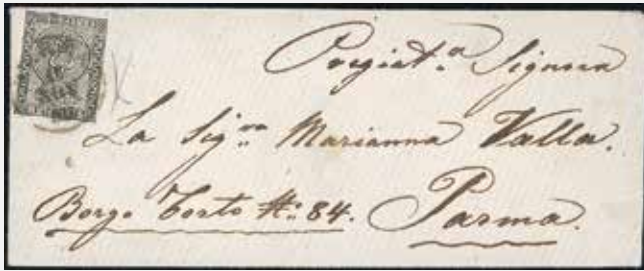 Pregiat.a Signora
La Sig.ra Marianna Valla.
Borgo Torto No. 84. Parma.